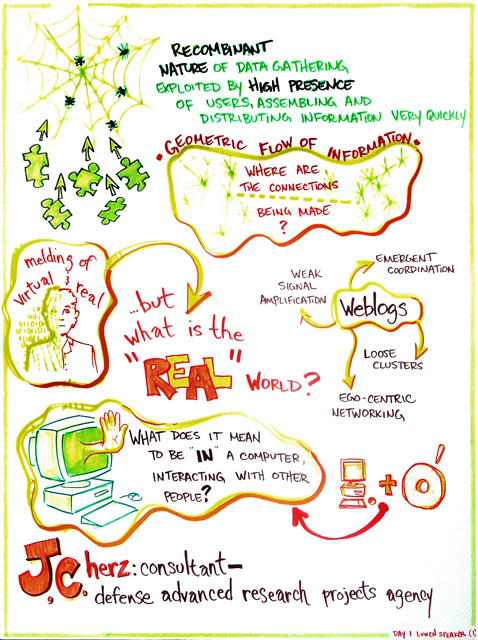 RECOMBINANT
NATURE OF DATA GATHERING
EXPLOITED BY HIGH PRESENCE
OF USERS, ASSEMBLING AND
DISTRIBUTING INFORMATION VERY QUICKLY
• GEOMETRIC FLOW OF INFORMATION •
WHERE ARE
THE CONNECTIONS
BEING MADE
?
melding of
virtual & real
...but
what is the
"REAL"
WORLD?
EMERGENT
COORDINATION
WEAK
SIGNAL
AMPLIFICATION
Weblogs
LOOSE
CLUSTERS
EGO-CENTRIC
NETWORKING
WHAT DOES IT MEAN
TO BE "IN" A COMPUTER,
INTERACTING WITH OTHER
PEOPLE?
+
J.C. herz: consultant—
defense advanced research projects agency
DAY 1 LUNCH SPEAKER